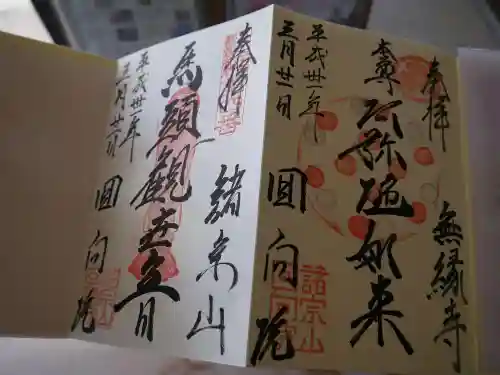 奉拝
無縁寺
本尊
阿弥陀如来
平成卅一年
三月廿一日
回向院
諸宗山
奉拝
諸宗山
馬頭観世音
平成卅一年
三月廿一日
回向院